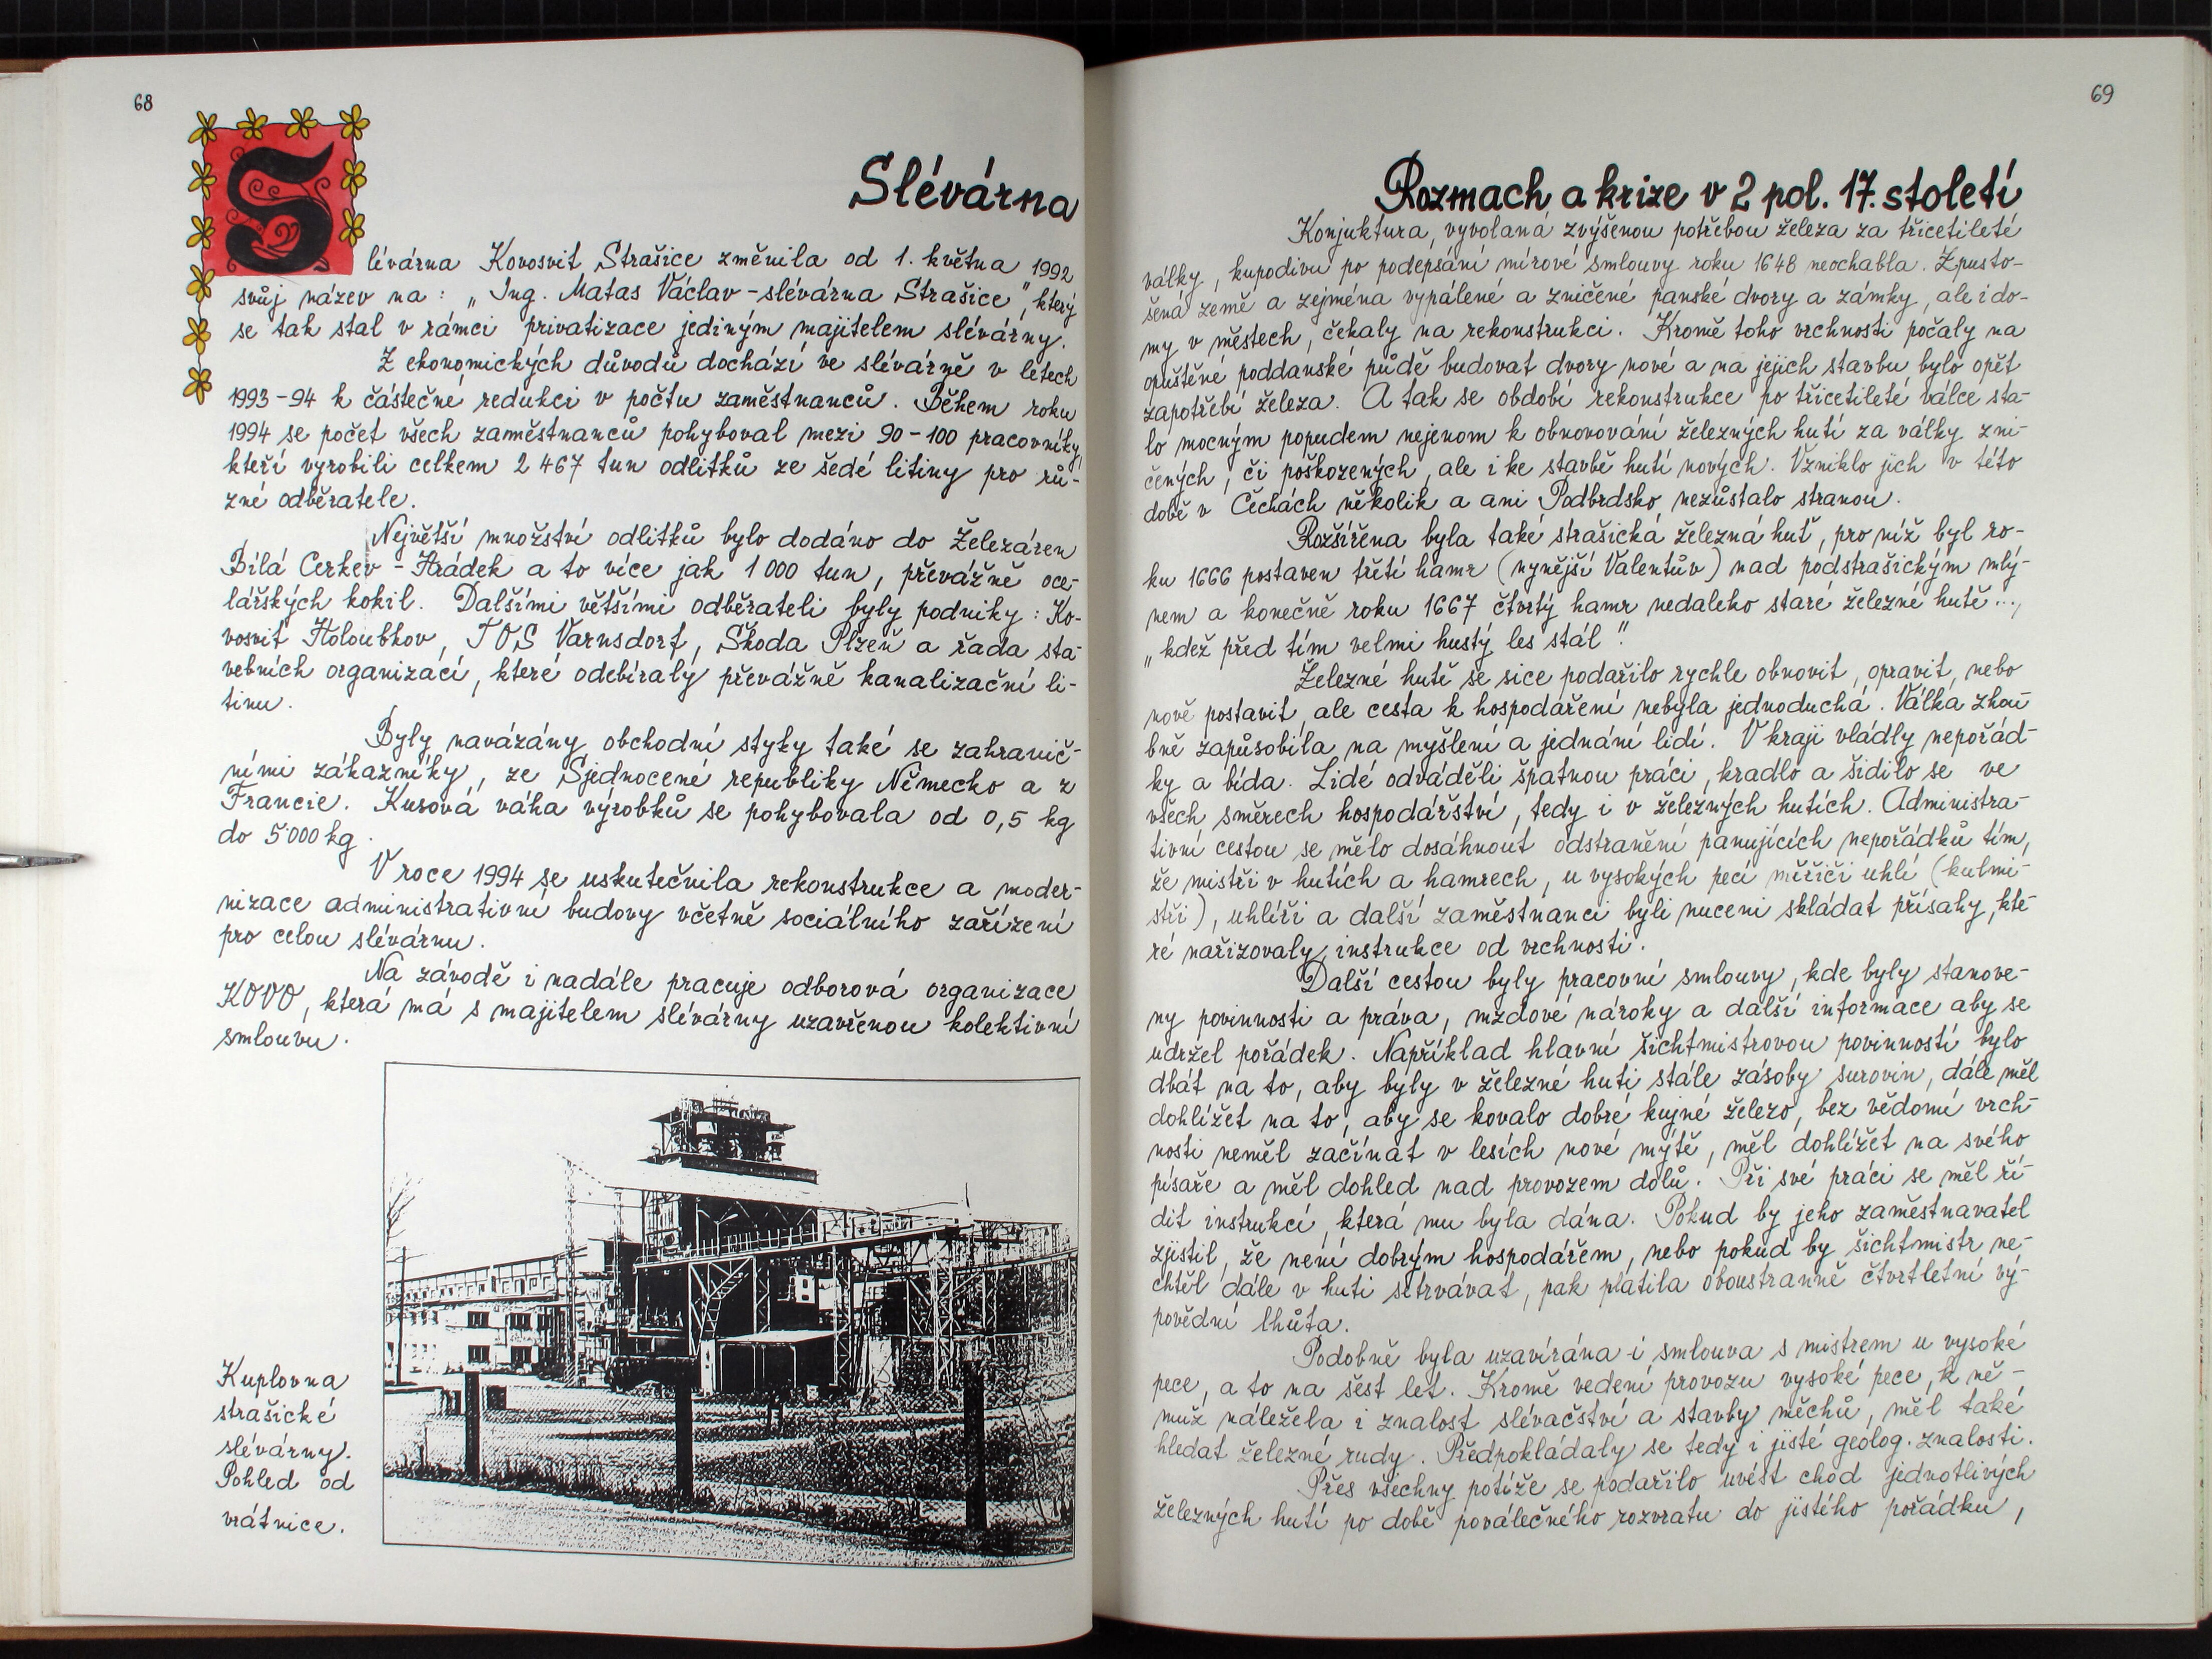 68
Slévárna
Slévárna Kovosvit Strašice změnila od 1. května 1992
svůj název na: „Ing. Matas Václav - slévárna Strašice", který
se tak stal v rámci privatizace jediným majitelem slévárny.
Z ekonomických důvodů dochází ve slévárně v létech
1993-94 k částečné redukci v počtu zaměstnanců. Během roku
1994 se počet všech zaměstnanců pohyboval mezi 90-100 pracovníky,
kteří vyrobili celkem 2 467 tun odlitků ze šedé litiny pro rů-
zné odběratele.
Největší množství odlitků bylo dodáno do Železáren
Bílá Cerkev - Hrádek a to více jak 1 000 tun, převážně oce-
lářských kokil. Dalšími většími odběrateli byly podniky: Ko-
vosvit Holoubkov, TOS Varnsdorf, Škoda Plzeň a řada sta-
vebních organizací, které odebíraly převážně kanalizační li-
tinu.
Byly navázány obchodní styky také se zahranič-
ními zákazníky, ze Sjednocené republiky Německo a z
Francie. Kusová váha výrobků se pohybovala od 0,5 kg
do 5000 kg.
V roce 1994 se uskutečnila rekonstrukce a moder-
nizace administrativní budovy včetně sociálního zařízení
pro celou slévárnu.
Na závodě i nadále pracuje odborová organizace
KOVO, která má s majitelem slévárny uzavřenou kolektivní
smlouvu.
Kuplovna
strašické
slévárny.
Pohled od
vrátnice.
69
Rozmach a krize v 2 pol. 17. století
Konjuktura, vyvolaná zvýšenou potřebou železa za třicetileté
války, kupodivu po podepsání mírové smlouvy roku 1648 neochabla. Zpusto-
šená země a zejména vypálené a zničené panské dvory a zámky, ale i do-
my v městech, čekaly na rekonstrukci. Kromě toho vrchnosti počaly na
opuštěné poddanské půdě budovat dvory nové a na jejich stavbu bylo opět
zapotřebí železa. A tak se období rekonstrukce po třicetileté válce sta-
lo mocným popudem nejenom k obnovování železných hutí za války zni-
čených, či poškozených, ale i ke stavbě hutí nových. Vzniklo jich v této
době v Čechách několik a ani Podbrdsko nezůstalo stranou.
Rozšířena byla také strašická železná huť, pro níž byl ro-
ku 1666 postaven třetí hamr (nynější Valentův) nad podstrašickým mlý-
nem a konečně roku 1667 čtvrtý hamr nedaleho staré železné hutě...,
„kdež před tím velmi hustý les stál".
Železné hutě se sice podařilo rychle obnovit, opravit, nebo
nově postavit, ale cesta k hospodaření nebyla jednoduchá. Válka zhou-
bně zapůsobila na myšlení a jednání lidí. V kraji vládly nepořád-
ky a bída. Lidé odváděli špatnou práci, kradlo a šidilo se ve
všech směrech hospodářství, tedy i v železných hutích. Administra-
tivní cestou se mělo dosáhnout odstranění panujících nepořádků tím,
že mistři v hutích a hamrech, u vysokých pecí měřiči uhlí (kulmi-
stři), uhlíři a další zaměstnanci byli nuceni skládat přísahy, kte-
ré nařizovaly instrukce od vrchností.
Další cestou byly pracovní smlouvy, kde byly stanove-
ny povinnosti a práva, mzdové nároky a další informace aby se
udržel pořádek. Například hlavní šichtmistrovou povinností bylo
dbát na to, aby byly v železné huti stále zásoby surovin, dále měl
dohlížet na to, aby se kovalo dobré kujné železo, bez vědomí vrch-
nosti neměl začínat v lesích nové mýtě, měl dohlížet na svého
písaře a měl dohled nad provozem dolů. Při své práci se měl ří-
dit instrukcí, která mu byla dána. Pokud by jeho zaměstnavatel
zjistil, že není dobrým hospodářem, nebo pokud by šichtmistr ne-
chtěl dále v huti setrvávat, pak platila oboustranně čtvrtletní vý-
povědní lhůta.
Podobně byla uzavírána i smlouva s mistrem u vysoké
pece, a to na šest let. Kromě vedení provozu vysoké pece, k ně-
muž náležela i znalost slévačství a stavby měchů, měl také
hledat železné rudy. Předpokládaly se tedy i jisté geolog. znalosti.
Přes všechny potíže se podařilo uvést chod jednotlivých
železných hutí po době poválečného rozvratu do jistého pořádku,